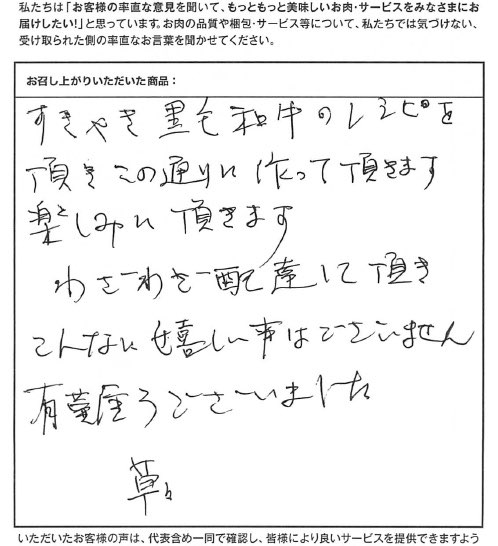 私たちは「お客様の率直な意見を聞いて、もっともっと美味しいお肉・サービスをみなさまにお
届けしたい!」と思っています。お肉の品質や梱包・サービス等について、私たちでは気づけない、
受け取られた側の率直なお言葉を聞かせてください。
お召し上がりいただいた商品：
すきやき黒毛和牛のレシピを
頂きこの通りに作って頂きます
楽しみに頂きます
わざーわざー配達して頂き
こんなに嬉しい事はございません
有難うございました
草々
いただいたお客様の声は、代表含め一同で確認し、皆様により良いサービスを提供できますよう